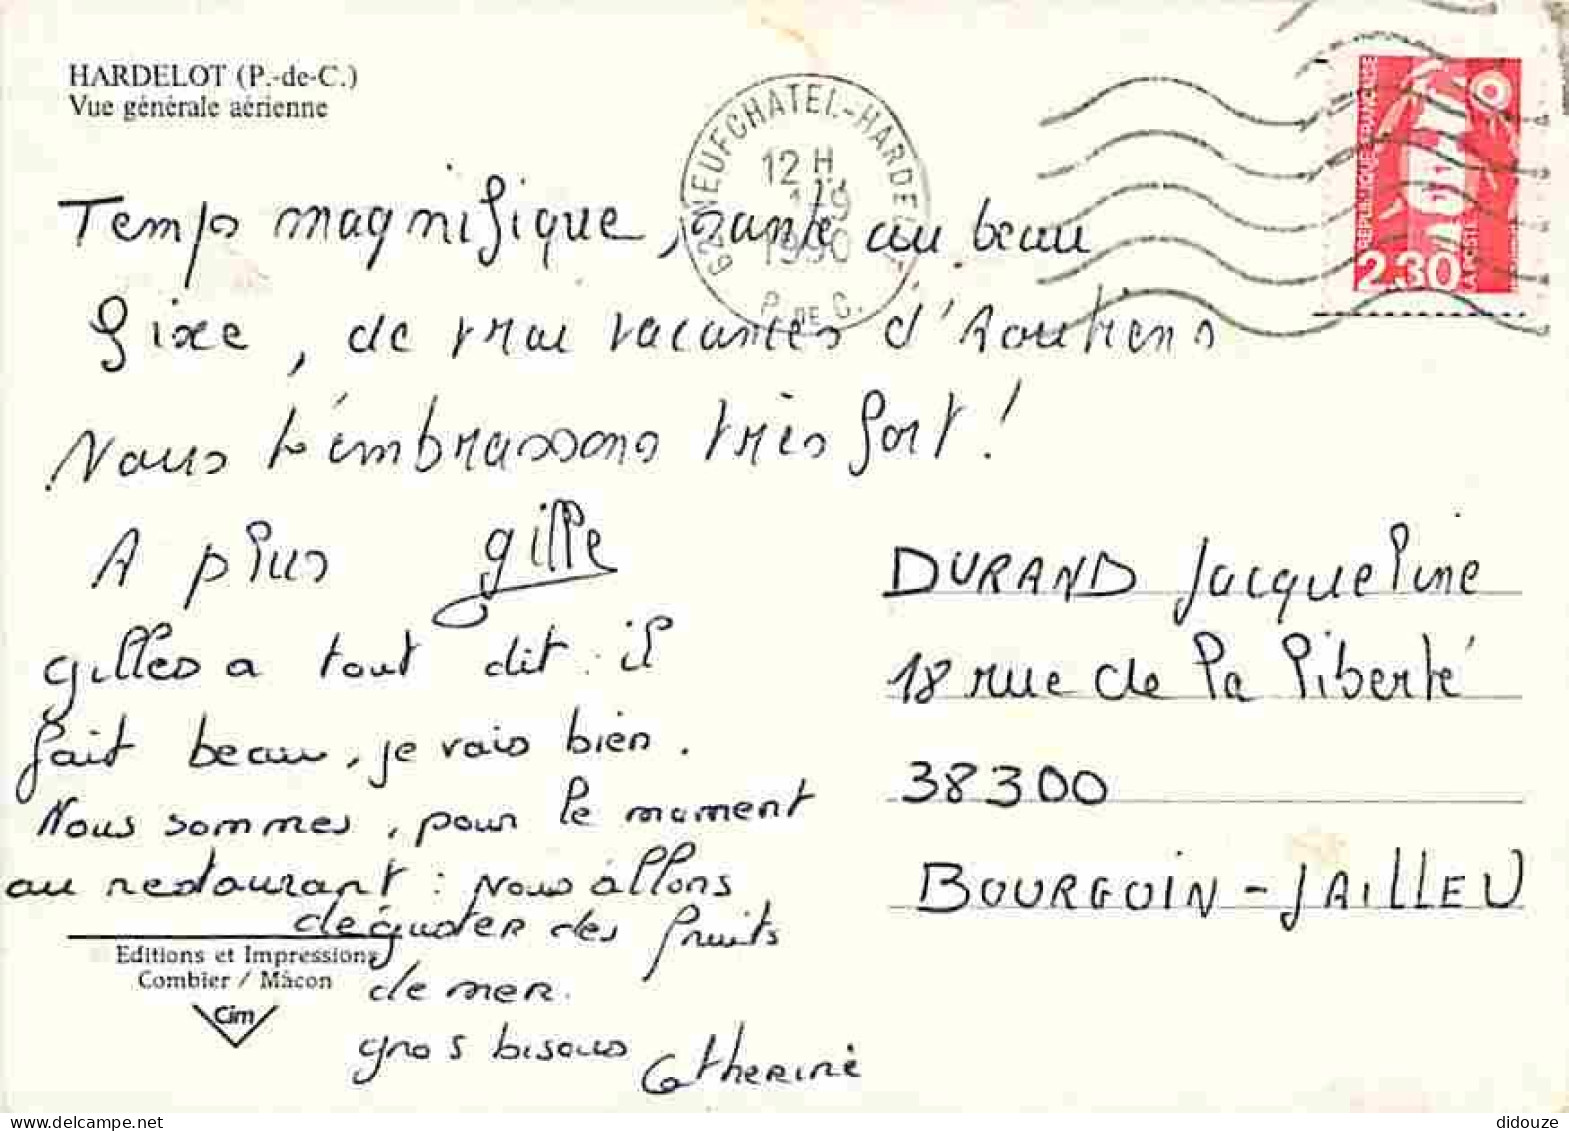 HARDELOT (P.-de-C.)
Vue générale aérienne
62 NEUFCHATEL-HARDELOT
12 H
1-9
1990
P. DE C.
REPUBLIQUE FRANÇAISE
2,30
LA POSTE
Temps magnifique, santé au beau
fixe, de vrai vacances d'Aoutiens
Nous t'embrassons très fort!
A plus gille
gilles a tout dit : il
fait beau, je vais bien.
Nous sommes, pour le moment
au restaurant : Nous allons
déguster des fruits
de mer.
gros bisous Catherine
DURAND Jacqueline
18 rue de la liberté
38300
BOURGOIN-JAILLEU
Editions et Impressions
Combier / Mâcon
Cim
Delcampe.net
didouze